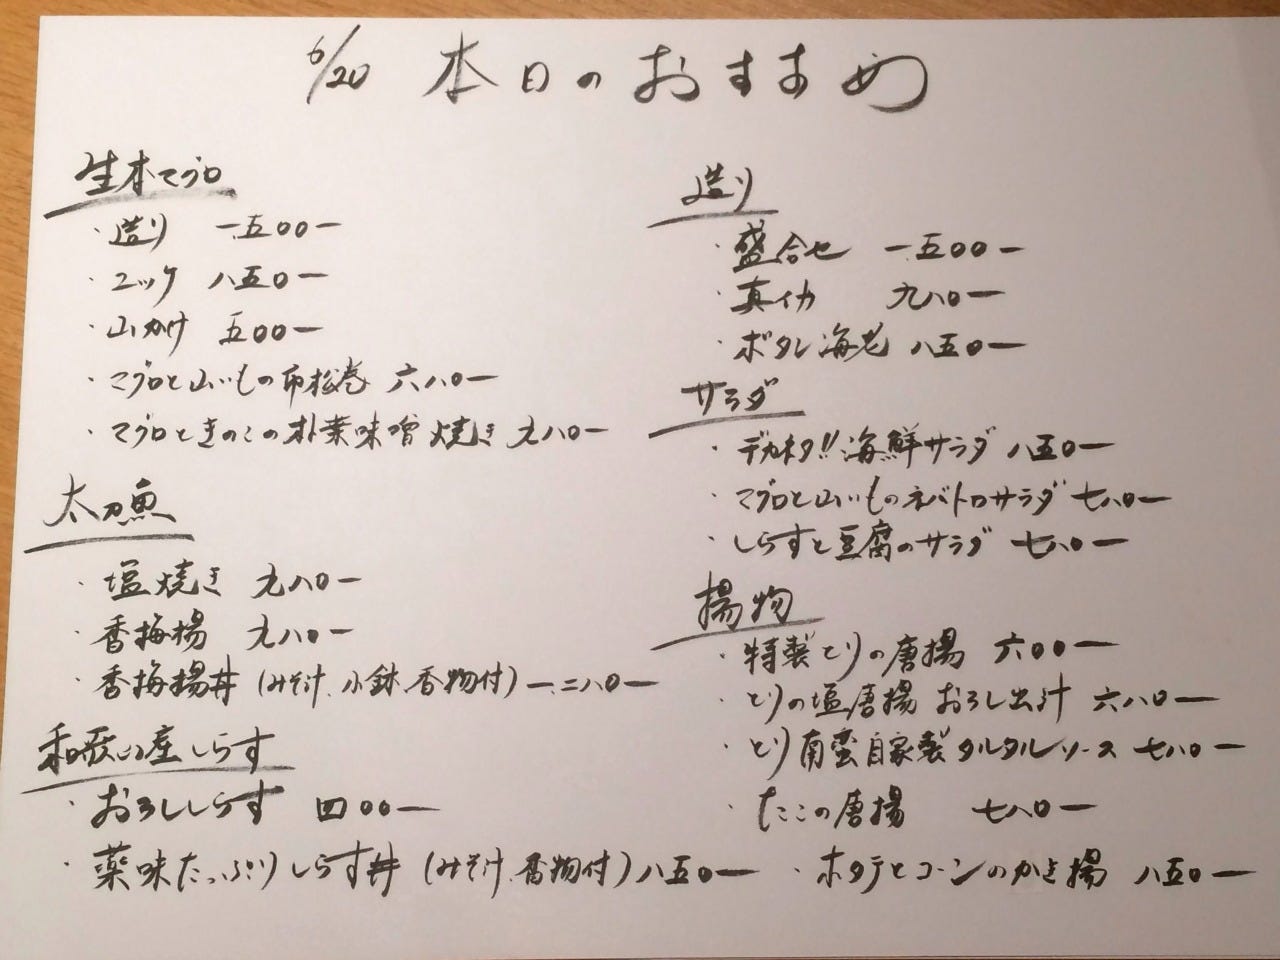 6/20 本日のおすすめ
生本マグロ
・造り 一五〇〇ー
・ユッケ 八五〇ー
・山かけ 五〇〇ー
・マグロと山いもの市松巻 六八〇ー
・マグロときのこの朴葉味噌焼き 九八〇ー
太刀魚
・塩焼き 九八〇ー
・香梅揚 九八〇ー
・香梅揚丼(みそ汁、小鉢、香物付)一、二八〇ー
和歌山産しらす
・おろししらす 四〇〇ー
・薬味たっぷりしらす丼(みそ汁、香物付)八五〇ー
造り
・盛合せ 一五〇〇ー
・真イカ 九八〇ー
・ボタン海老 八五〇ー
サラダ
・デカネタ!!海鮮サラダ 八五〇ー
・マグロと山いものネバトロサラダ 七八〇ー
・しらすと豆腐のサラダ 七八〇ー
揚物
・特製とりの唐揚 六〇〇ー
・とりの塩唐揚 おろし出汁 六八〇ー
・とり南蛮自家製タルタルソース 七八〇ー
・たこの唐揚 七八〇ー
・ホタテとコーンのかき揚 八五〇ー